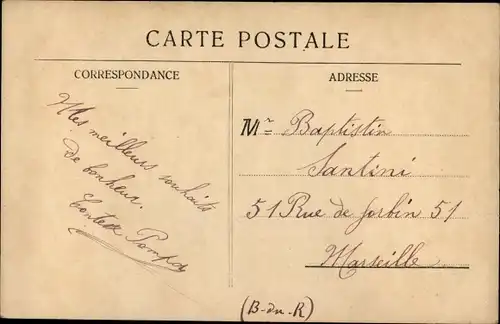 CARTE POSTALE
CORRESPONDANCE
Mes meilleurs souhaits
de bonheur.
ADRESSE
Mr Baptistin
Santini
51 Rue de Forbin 51
Marseille
(B-du-R)